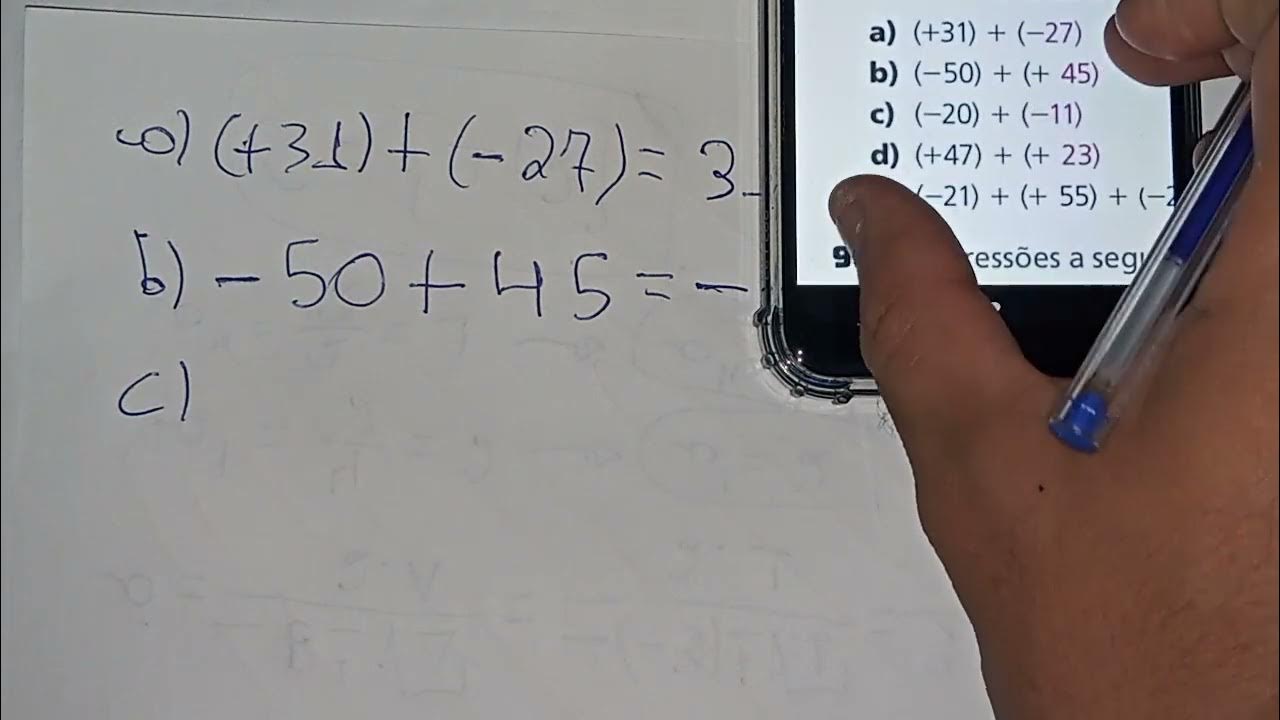 a) (+31) + (-27) = 3-
b) - 50 + 45 = -
c)
a) (+31) + (−27)
b) (−50) + (+ 45)
c) (−20) + (−11)
d) (+47) + (+ 23)
(−21) + (+ 55) + (−2
9 ressões a seg